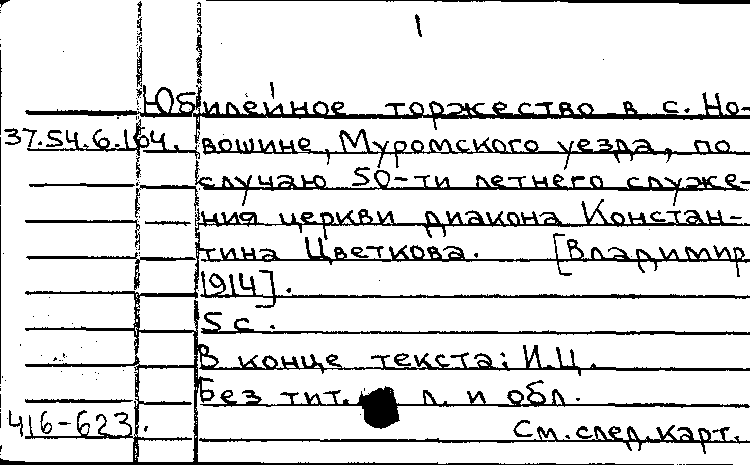 1
Юбилейное торжество в с. Но-
37.54.6.164. вошине, Муромского уезда, по
случаю 50-ти летнего служе-
ния церкви диакона Констан-
тина Цветкова. [Владимир
1914].
5 с.
В конце текста: И.Ц.
Без тит. л. и обл.
416-623. См. след. карт.